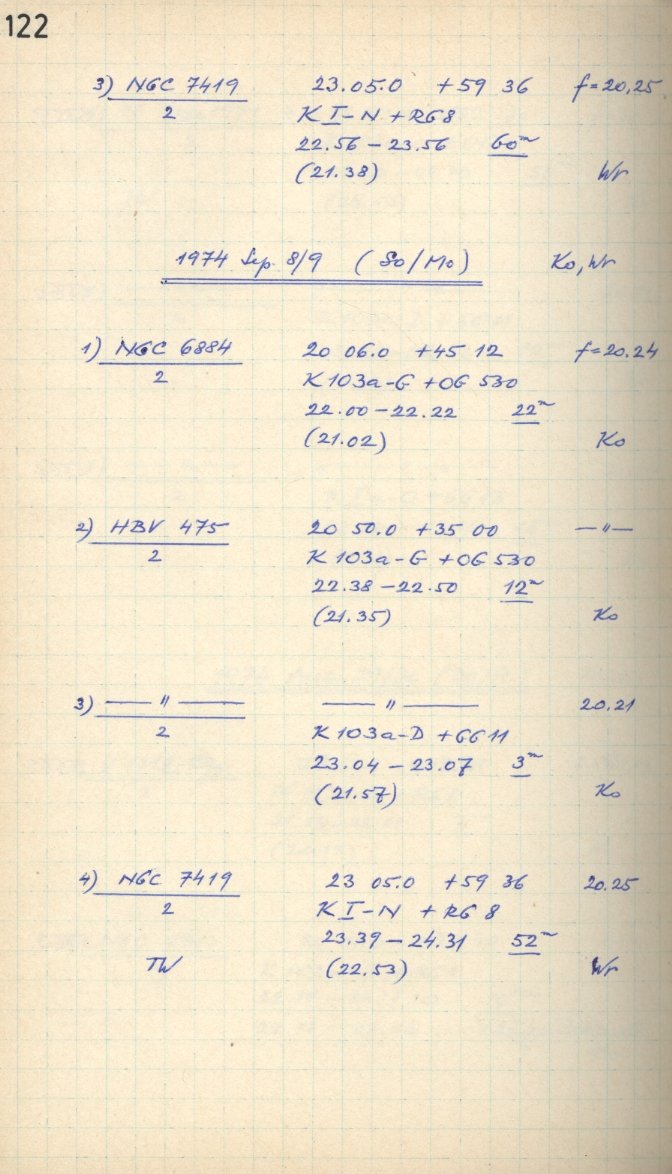 122
3) NGC 7419 23.05.0 +59 36 f=20,25
2 K I-N + RG8
22.56 – 23.56 60m
(21.38) Wr
1974 Sep. 8/9 (So/Mo) Ko, Wr
1) NGC 6884 20 06.0 +45 12 f=20.24
2 K 103a-G + OG 530
22.00 – 22.22 22m
(21.02) Ko
2) HBV 475 20 50.0 +35 00 — " —
2 K 103a-G + OG 530
22.38 – 22.50 12m
(21.35) Ko
3) — " — — " — 20.21
2 K 103a-D + GG11
23.04 – 23.07 3m
(21.57) Ko
4) NGC 7419 23 05.0 +59 36 20.25
2 K I-N + RG 8
23.39 – 24.31 52m
TW (22.53) Wr